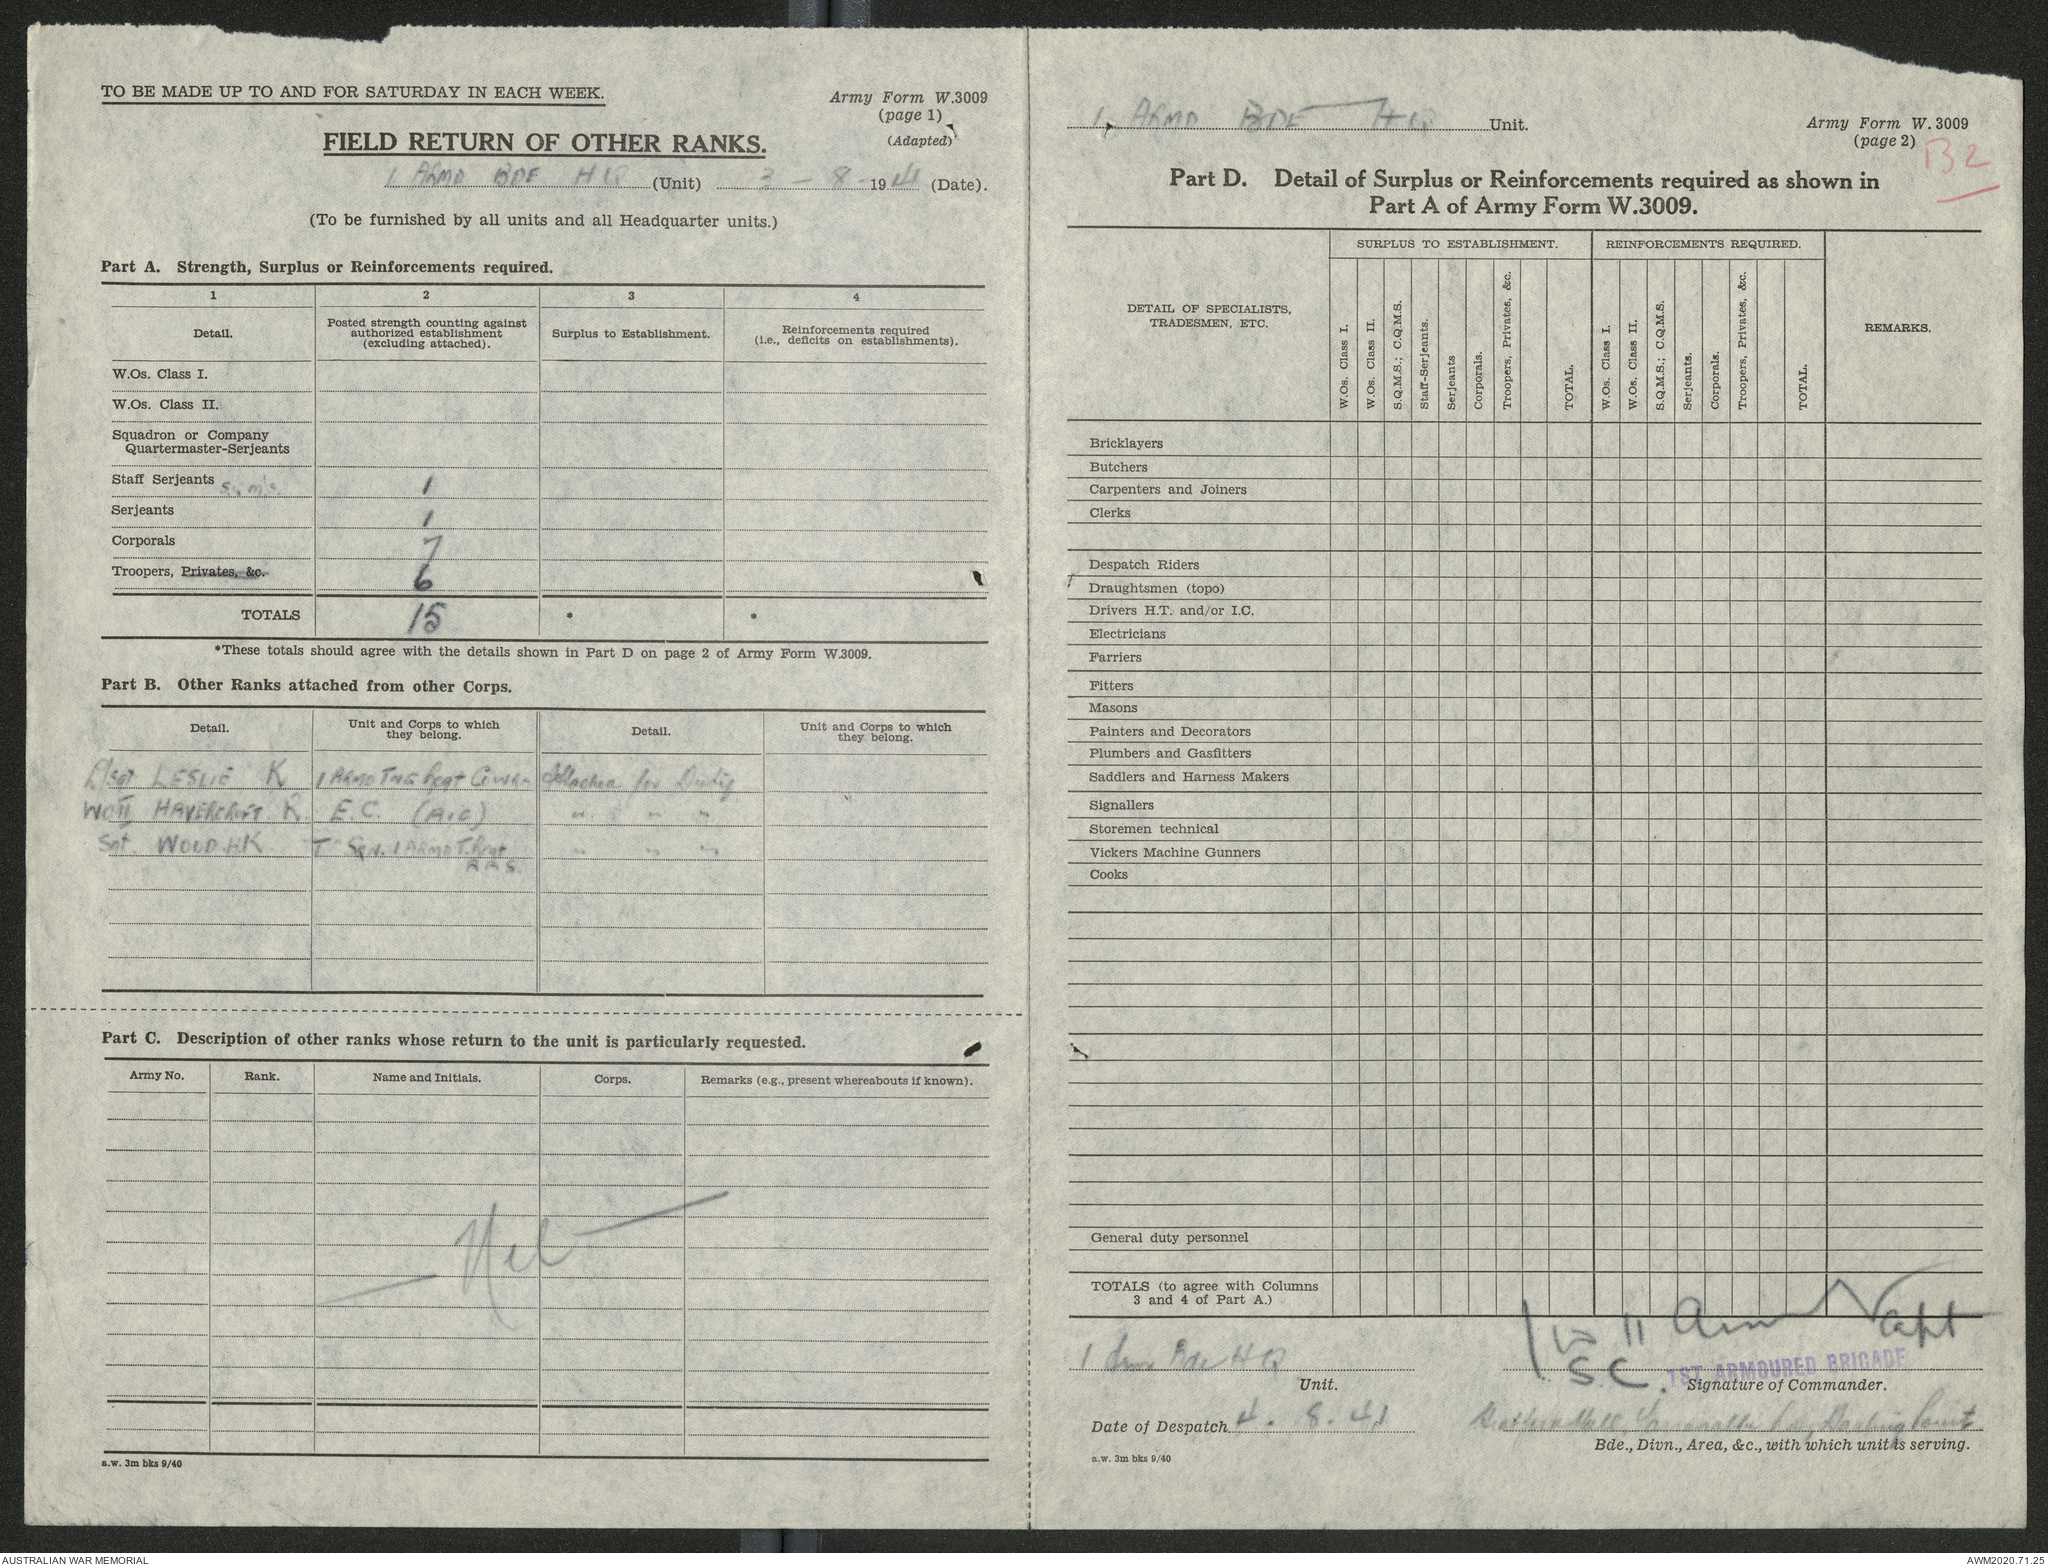 TO BE MADE UP TO AND FOR SATURDAY IN EACH WEEK.
Army Form W.3009
(page 1)
(Adapted)
FIELD RETURN OF OTHER RANKS.
1 ARMD BDE HQ (Unit) 3 - 8 - 1941 (Date).
(To be furnished by all units and all Headquarter units.)
Part A. Strength, Surplus or Reinforcements required.
1 2 3 4
Detail.
Posted strength counting against authorized establishment (excluding attached).
Surplus to Establishment.
Reinforcements required (i.e., deficits on establishments).
W.Os. Class I.
W.Os. Class II.
Squadron or Company
Quartermaster-Serjeants
Staff Serjeants 1
Serjeants 1
Corporals 7
Troopers, Privates, &c. 6
TOTALS 15 * *
*These totals should agree with the details shown in Part D on page 2 of Army Form W.3009.
Part B. Other Ranks attached from other Corps.
Detail.
Unit and Corps to which they belong.
Detail.
Unit and Corps to which they belong.
L/Sgt LESLIE K 1 ARMD TNG Regt Attached for Duty
WOII HAVERCROFT K. E.C. (A.I.C) " " "
Sgt. WOOD H.K T Sqn. 1 ARMD T. Regt " " "
Part C. Description of other ranks whose return to the unit is particularly requested.
Army No. Rank. Name and Initials. Corps. Remarks (e.g., present whereabouts if known).
Nil
a.w. 3m bks 9/40
1 ARMD BDE HQ Unit.
Army Form W. 3009
(page 2)
B2
Part D. Detail of Surplus or Reinforcements required as shown in
Part A of Army Form W.3009.
DETAIL OF SPECIALISTS, TRADESMEN, ETC.
SURPLUS TO ESTABLISHMENT.
REINFORCEMENTS REQUIRED.
REMARKS.
W.Os. Class I.
W.Os. Class II.
S.Q.M.S.; C.Q.M.S.
Staff-Serjeants.
Serjeants
Corporals.
Troopers, Privates, &c.
TOTAL.
W.Os. Class I.
W.Os. Class II.
S.Q.M.S.; C.Q.M.S.
Serjeants.
Corporals.
Troopers, Privates, &c.
TOTAL.
Bricklayers
Butchers
Carpenters and Joiners
Clerks
Despatch Riders
Draughtsmen (topo)
Drivers H.T. and/or I.C.
Electricians
Farriers
Fitters
Masons
Painters and Decorators
Plumbers and Gasfitters
Saddlers and Harness Makers
Signallers
Storemen technical
Vickers Machine Gunners
Cooks
General duty personnel
TOTALS (to agree with Columns
3 and 4 of Part A.)
Capt
1 Armd Bde HQ
Unit.
S.C. 1ST ARMOURED BRIGADE
Signature of Commander.
Date of Despatch 4. 8. 41
Bde., Divn., Area, &c., with which unit is serving.
a.w. 3m bks 9/40
AUSTRALIAN WAR MEMORIAL
AWM2020.71.25